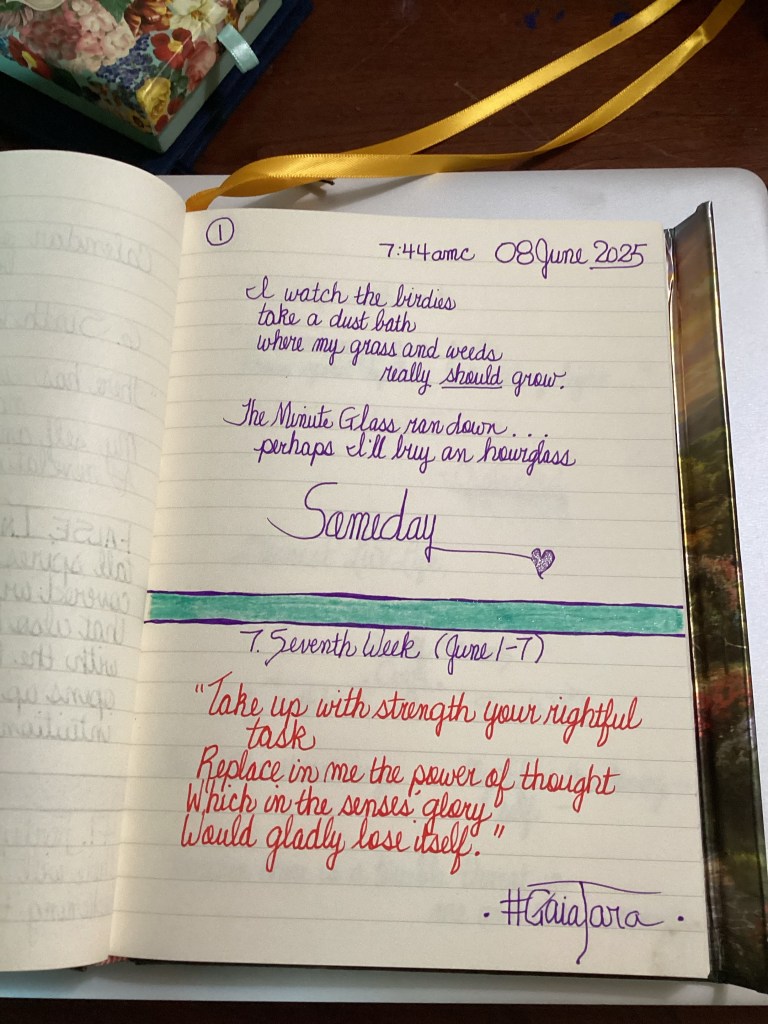 1
7:44amc 08 June 2025
I watch the birdies
take a dust bath
where my grass and weeds
really should grow.
The Minute Glass ran down...
perhaps I'll buy an hourglass
Someday
7. Seventh Week (June 1-7)
"Take up with strength your rightful
task
Replace in me the power of thought
Which in the senses' glory
Would gladly lose itself."
• #GaiaTara •